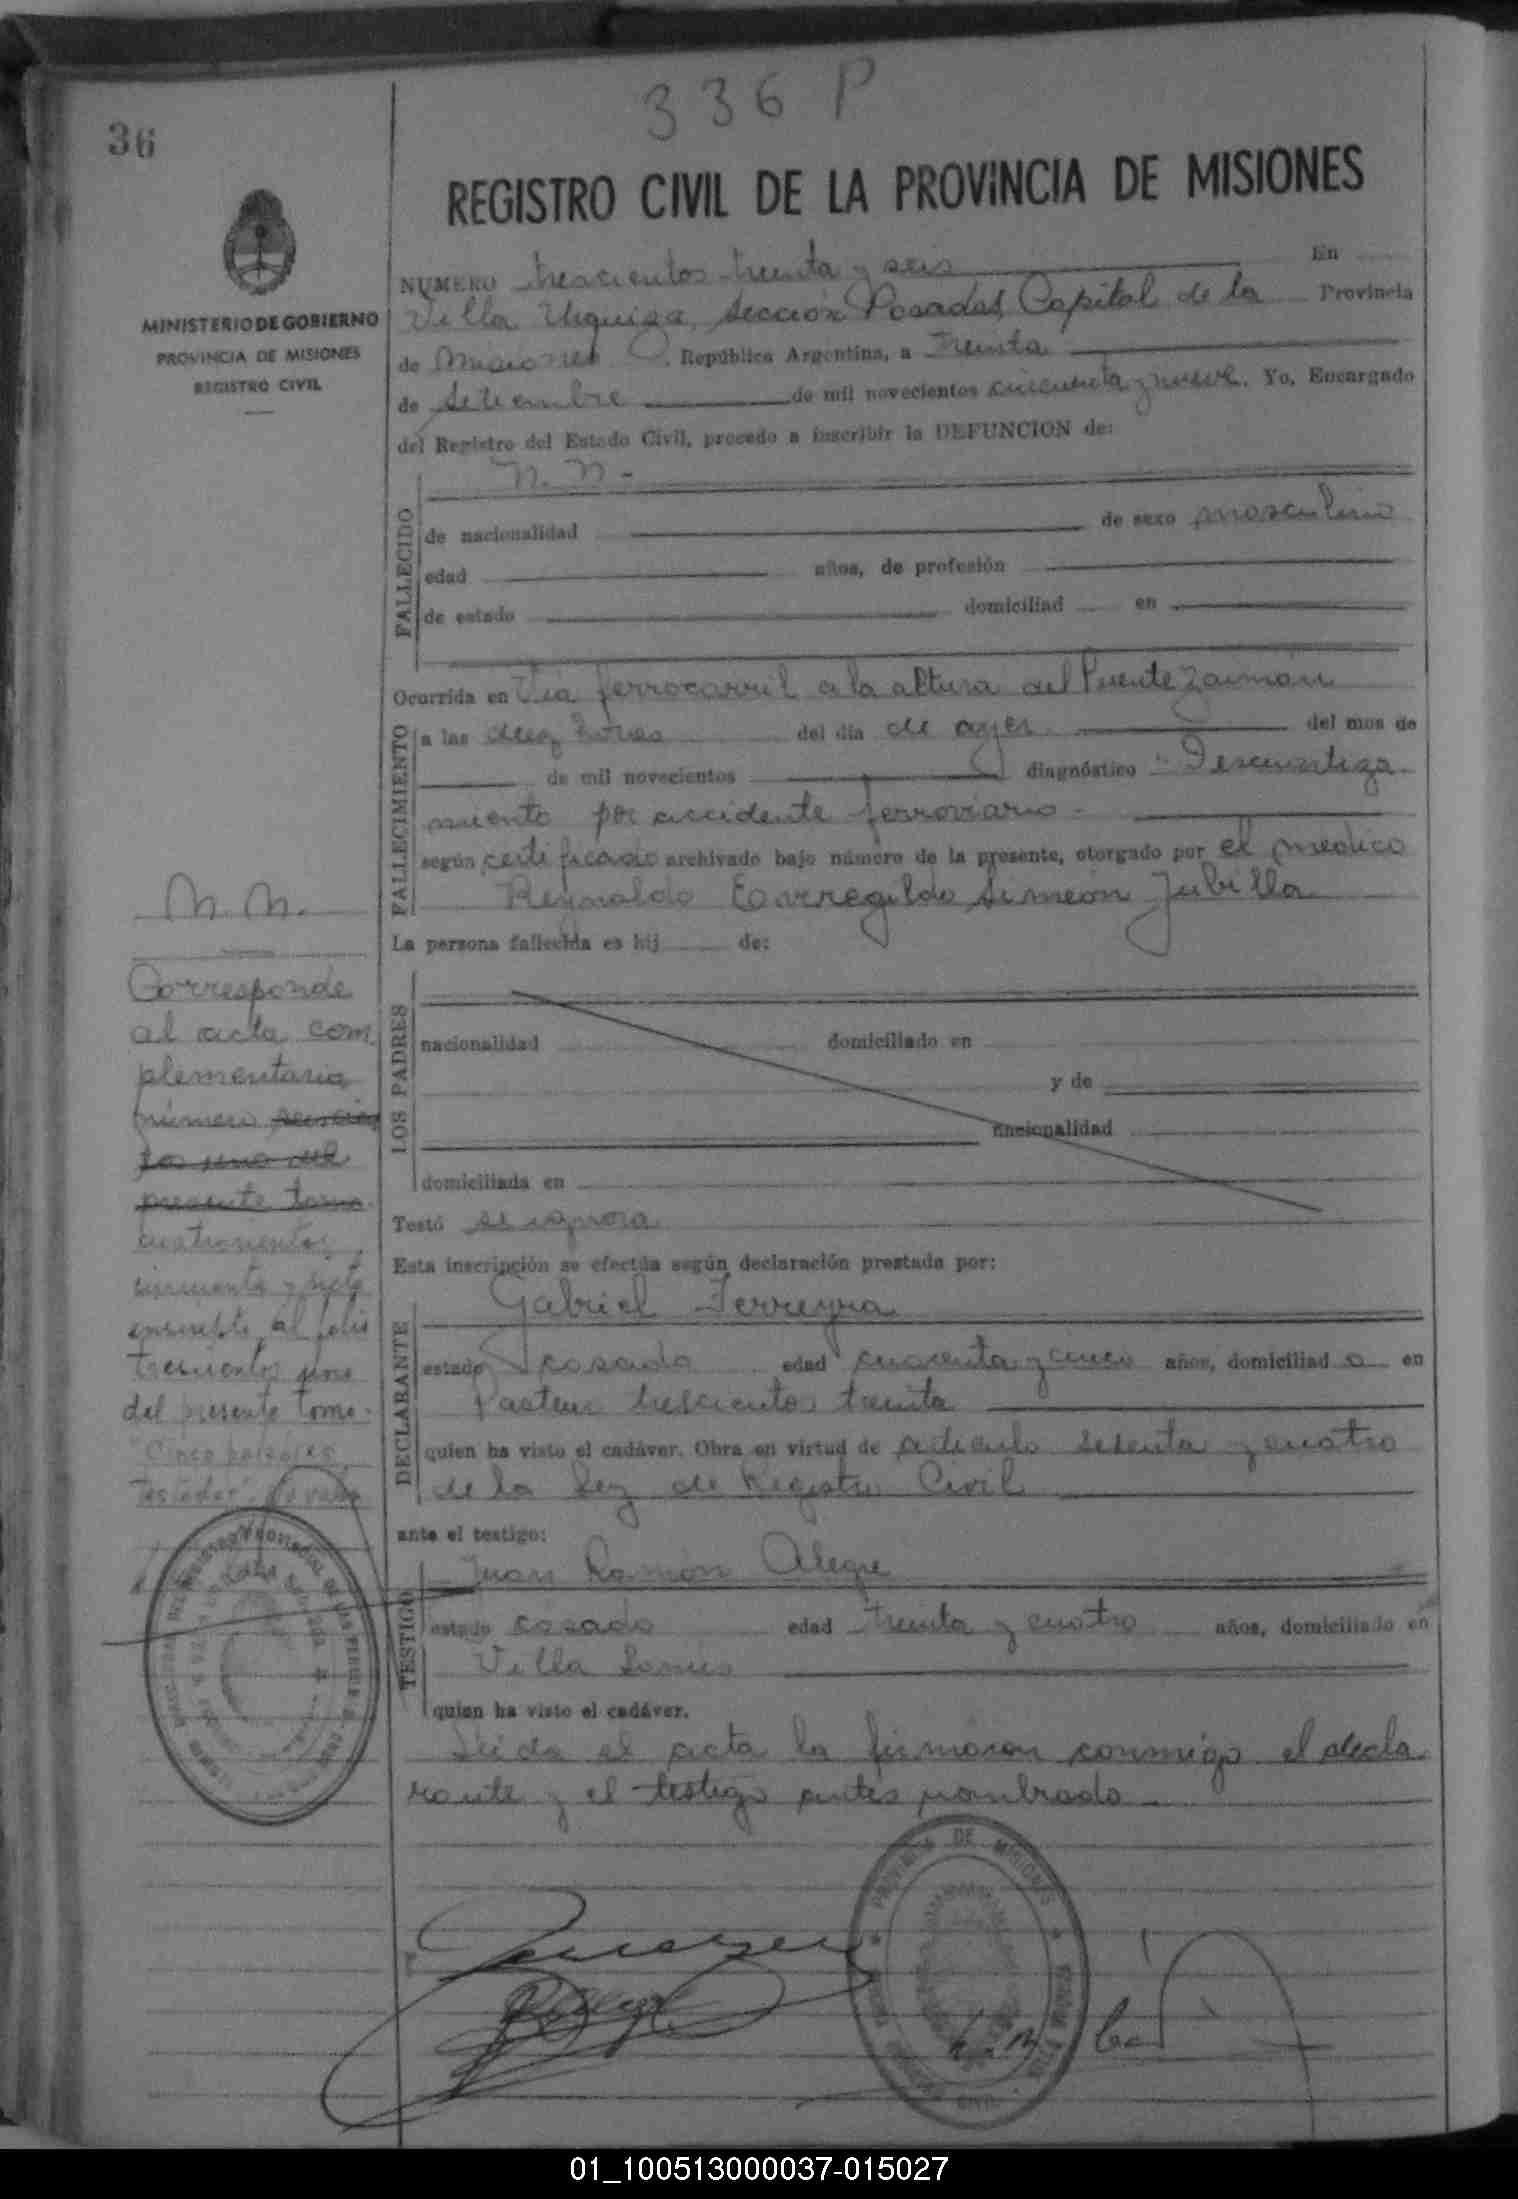 336 P
36
REGISTRO CIVIL DE LA PROVINCIA DE MISIONES
MINISTERIO DE GOBIERNO
PROVINCIA DE MISIONES
REGISTRO CIVIL
NUMERO trescientos treinta y seis En
Villa Urquiza, sección Posadas Capital de la Provincia
de Misiones, República Argentina, a treinta
de setiembre de mil novecientos cincuenta y nueve. Yo, Encargado
del Registro del Estado Civil, procedo a inscribir la DEFUNCION de:
FALLECIDO
N. N -
de nacionalidad de sexo masculino
edad años, de profesión
de estado domiciliad en
Ocurrida en Via ferrocarril a la altura del Puente Zaimán
FALLECIMIENTO
a las diez horas del día de ayer del mes de
de mil novecientos diagnóstico "Descuartiza
miento por accidente ferroviario -
según certificado archivado bajo número de la presente, otorgado por el medico
Reynaldo Simeón Jubilla
La persona fallecida es hij de:
LOS PADRES
nacionalidad domiciliado en
y de
nacionalidad
domiciliada en
Testó se ignora
Esta inscripción se efectúa según declaración prestada por:
DECLARANTE
Gabriel Ferreyra
estado casado edad cuarenta y cinco años, domiciliad o en
Pasteur trescientos treinta
quien ha visto el cadáver. Obra en virtud de articulo setenta y cuatro
de la Ley de Registro Civil
ante el testigo:
TESTIGO
Juan Ramón Alegre
estado casado edad treinta y cuatro años, domiciliado en
Villa Lanús
quien ha visto el cadáver.
Leida el acta la firmaron conmigo el decla
rante y el testigo antes nombrado
N. N.
Corresponde
al acta com
plementaria
número seiscien
tos uno del
presente tomo
cuatrocientos
cincuenta y siete
inscripto al folio
trescientos uno
del presente tomo.
"Cinco palabras
testadas" No vale
PROVINCIA DE MISIONES
REGISTRO CIVIL
01_100513000037-015027